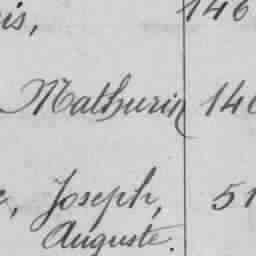 is, 146
Mathurin 146
e, Joseph, 51
Auguste.